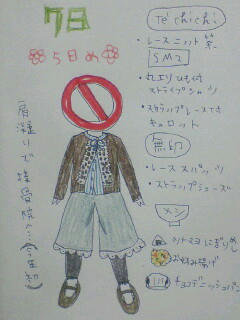 7日
5日め
肩凝りで接骨院へ…
Té chichi
・レースニット 茶
SM2
・丸エリひも付
ストライプシャツ
・スカラップレース
キュロット
無印
・レーススパッツ
・ストラップシューズ
メシ
ツナマヨにぎりめし
お好み揚げ
チョコデニッシュパン